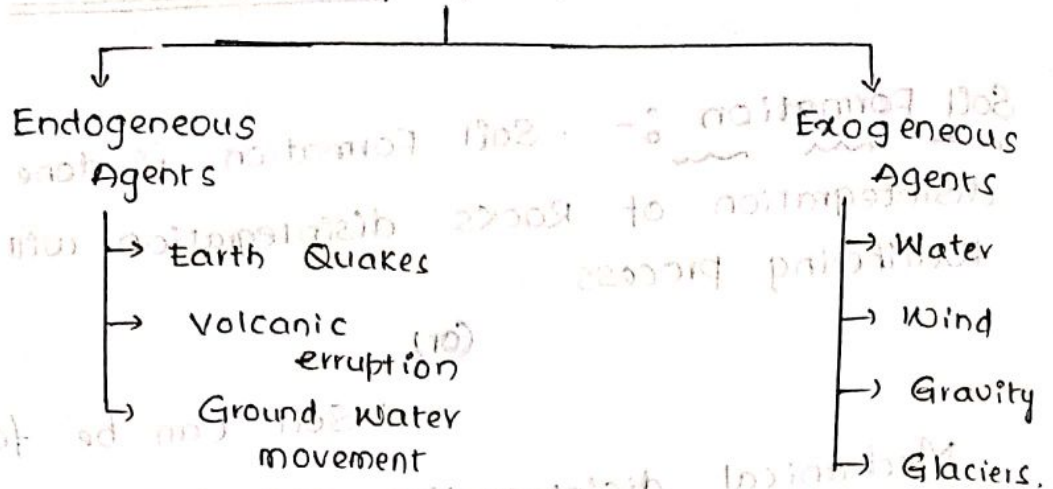 Endogeneous
Agents
Earth Quakes
Volcanic
erruption
Ground Water
movement
Exogeneous
Agents
Water
Wind
Gravity
Glaciers.